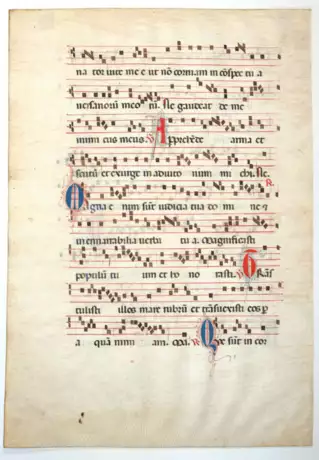 na tor uite mee ut nō corruam in cōspe tu a
uersario meo ru. Ne gaudeat de me
inimi cus meus. Apprehēde arma et
scutū et exurge in adiuto rium mi chi. Ne.
Magna e nim sūt iudicia tua do mi ne et
inenarrabilia uerba tu a. Magnificasti
populū tu um et ho no rasti. Trās
tulisti illos mare rubrū et trāsuexisti eos p
a quā nimi am. Ma. Que sūt in cor